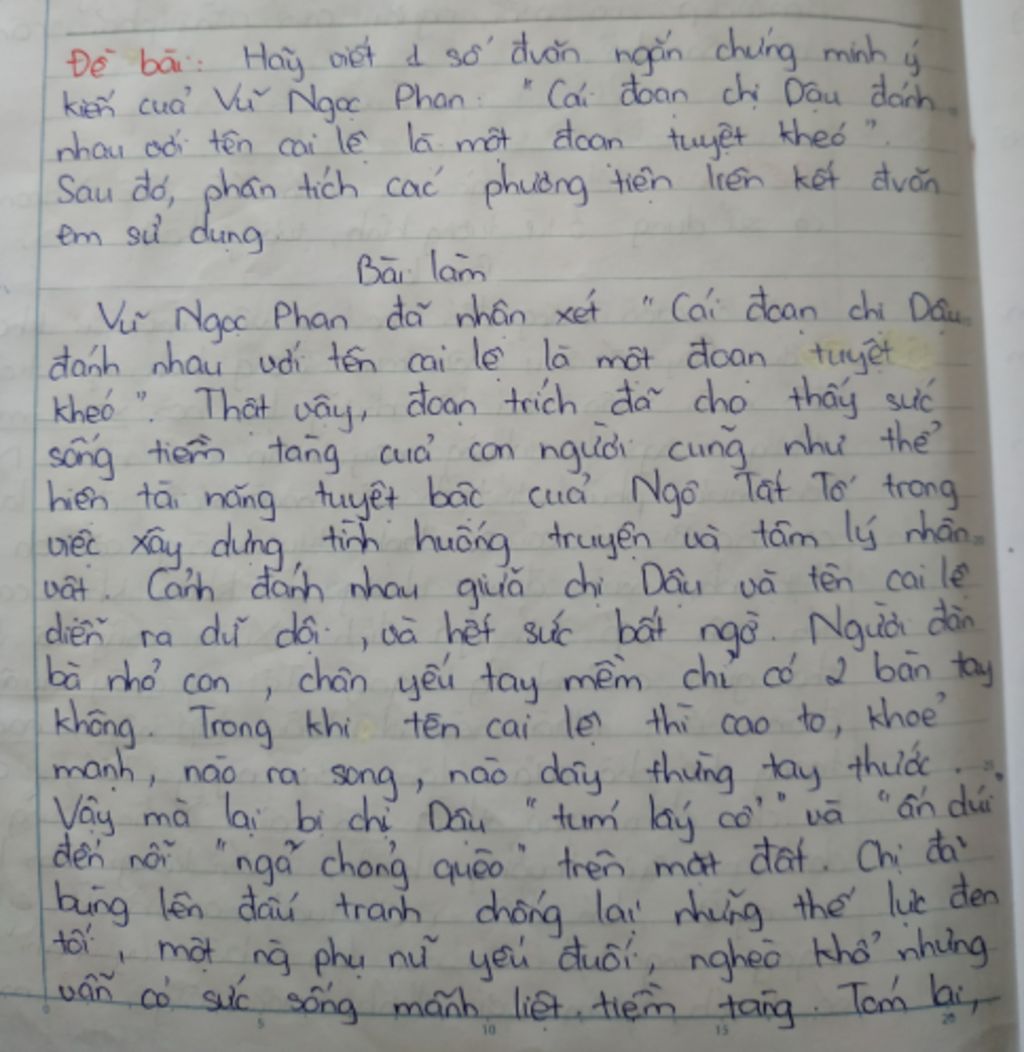 Đề bài: Hãy viết 1 số đvăn ngắn chứng minh ý
kiến của Vũ Ngọc Phan: "Cái đoạn chị Dậu đánh
nhau với tên cai lệ là một đoạn tuyệt khéo".
Sau đó, phân tích các phương tiện liên kết đvăn
em sử dụng
Bài làm
Vũ Ngọc Phan đã nhận xét "Cái đoạn chị Dậu
đánh nhau với tên cai lệ là một đoạn tuyệt
khéo". Thật vậy, đoạn trích đã cho thấy sức
sống tiềm tàng của con người cũng như thể
hiện tài năng tuyệt bậc của Ngô Tất Tố trong
việc xây dựng tình huống truyện và tâm lý nhân
vật. Cảnh đánh nhau giữa chị Dậu và tên cai lệ
diễn ra dữ dội, và hết sức bất ngờ. Người đàn
bà nhỏ con, chân yếu tay mềm chỉ có 2 bàn tay
không. Trong khi tên cai lệ thì cao to, khoẻ
mạnh, nào ra song, nào dây thừng tay thước...
Vậy mà lại bị chị Dậu "túm lấy cổ" và "ấn dúi
đến nỗi "ngã chỏng quèo" trên mặt đất. Chị đã
bùng lên đấu tranh chống lại những thế lực đen
tối, một ng phụ nữ yếu đuối, nghèo khổ nhưng
vẫn có sức sống mãnh liệt, tiềm tàng. Tóm lại,